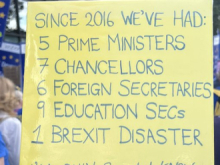 SINCE 2016 WE'VE HAD:
5 PRIME MINISTERS
7 CHANCELLORS
6 FOREIGN SECRETARIES
9 EDUCATION SECS
1 BREXIT DISASTER